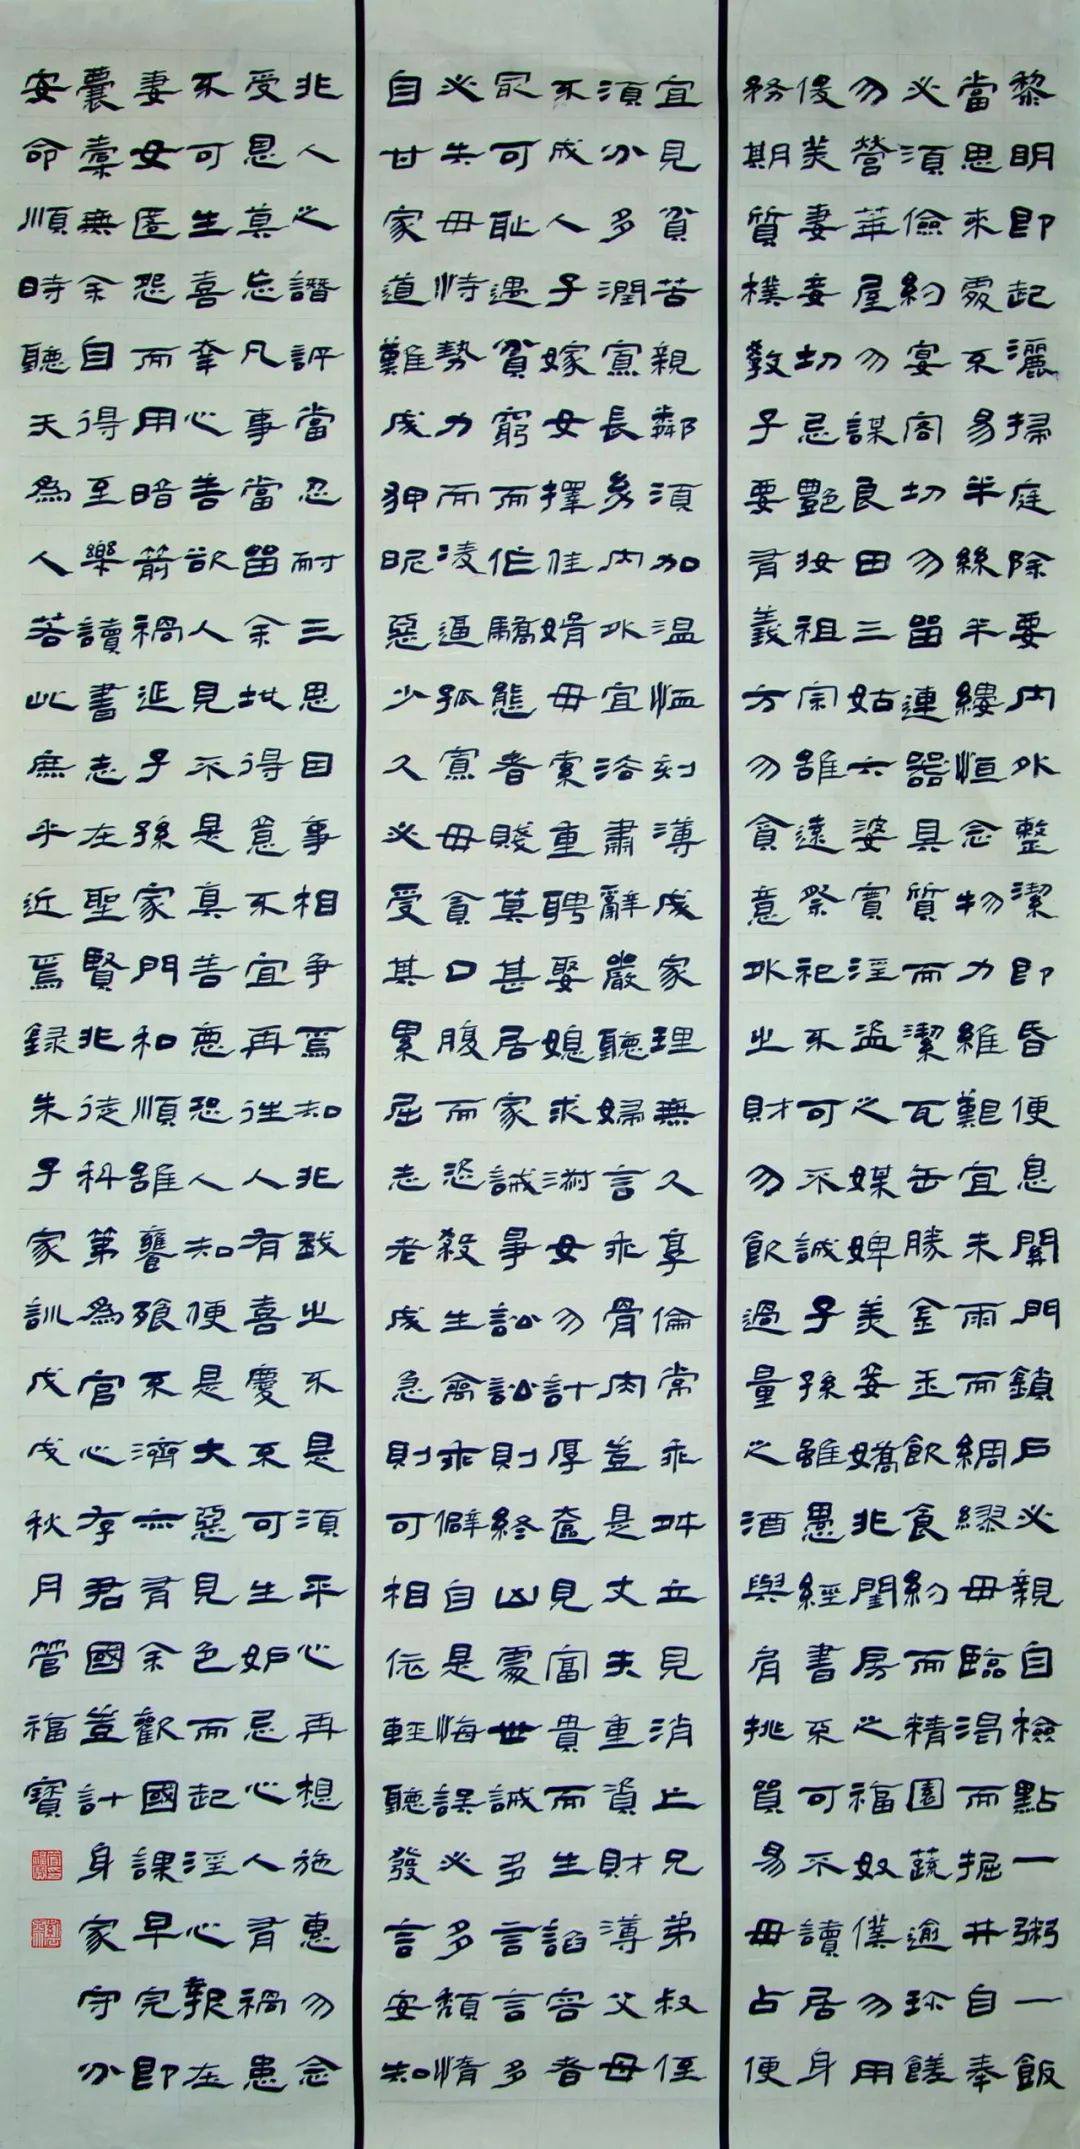 黎明即起灑掃庭除要内外整潔即昏便息關門鎖户必親自檢點一粥一飯
當思來處不易半絲半縷恒念物力維難宜未雨而綢繆毋臨渴而掘井自奉
必須儉約宴客切勿留連器具質而潔瓦缶勝金玉飲食約而精園蔬逾珍饈
勿營華屋勿謀良田三姑六婆實淫盗之媒婢美妾嬌非閨房之福奴僕勿用
俊美妻妾切忌艷妝祖宗雖遠祭祀不可不誠子孫雖愚經書不可不讀居身
務期質樸教子要有義方勿貪意外之財勿飲過量之酒與肩挑貿易毋占便
宜見貧苦親鄰須加温恤刻薄成家理無久享倫常乖舛立見消亡兄弟叔侄
須分多潤寡長幼内外宜浴肅辭嚴聽婦言乖骨肉豈是丈夫重資財薄父母
不成人子嫁女擇佳婿毋索重聘娶媳求淑女勿計厚奩見富貴而生諂容者
最可恥遇貧窮而作驕態者賤莫甚居家誡爭訟訟則終凶處世誡多言言多
必失毋恃勢力而凌逼孤寡毋貪口腹而恣殺生禽乖僻自是悔誤必多頹惰
自甘家道難成狎昵惡少久必受其累屈志老成急則可相依輕聽發言安知
非人之譖評當忍耐三思因事相争焉知非我之不是須平心再想施惠勿念
受恩莫忘凡事當留余地得意不宜再往人有喜慶不可生妒忌心人有禍患
不可生喜幸心善欲人見不是真善惡恐人知便是大惡見色而起淫心報在
妻女匿怨而用暗箭禍延子孫家門和順雖饔飧不濟亦有余歡國課早完即
囊橐無余自得至樂讀書志在聖賢非徒科第為官心存君國豈計身家守分
安命順時聽天為人若此庶乎近焉録朱子家訓戊戌秋月管福寶